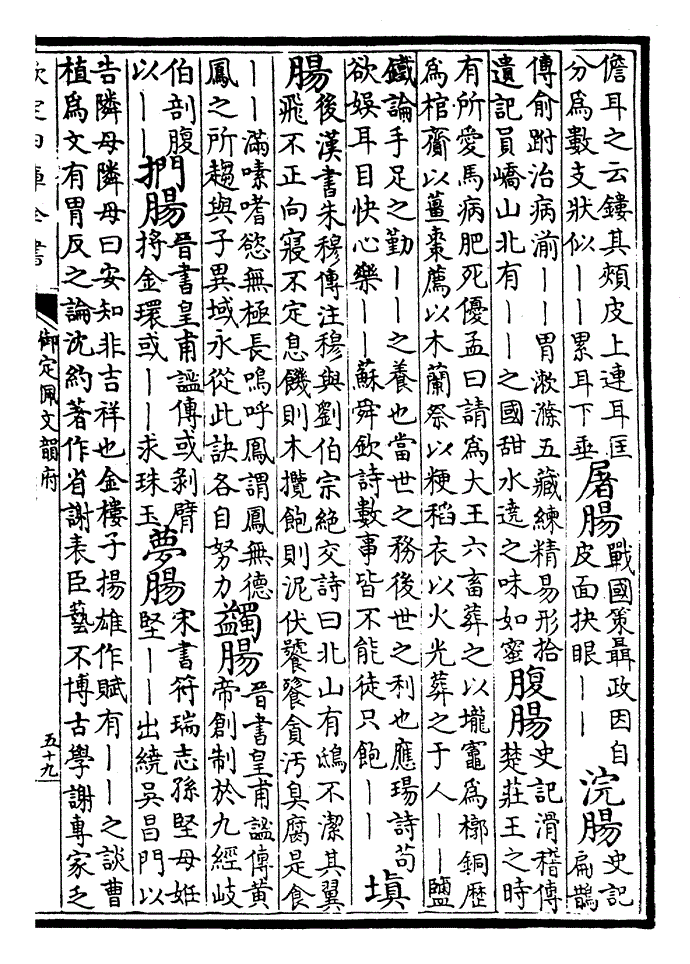 儋耳之云鏤其頰皮上連耳匡
分為數支狀似——累耳下垂
屠腸
戰國策聶政因自
皮面抉眼——
浣腸
史記
扁鵲
傳俞跗治病湔——胃漱滌五藏練精易形拾
遺記員嶠山北有——之國甜水遶之味如蜜
腹腸
史記滑稽傳
楚莊王之時
有所愛馬病肥死優孟曰請為大王六畜葬之以壠竈為槨銅歴
為棺齎以薑棗薦以木蘭祭以粳稻衣以火光葬之于人——鹽
鐵論手足之勤——之養也當世之務後世之利也應瑒詩苟
欲娛耳目快心樂——蘇舜欽詩數事皆不能徒只飽——
塡
腸
後漢書朱穆傳注穆與劉伯宗絶交詩曰北山有鴟不潔其翼
飛不正向寢不定息饑則木攬飽則泥伏饕餮貪汚臭腐是食
——滿嗉嗜慾無極長嗚呼鳳謂鳳無德
鳳之所趨與子異域永從此訣各自努力
蠲腸
晉書皇甫謐傳黃
帝創制於九經岐
伯剖腹
以——
捫腸
晉書皇甫謐傳或剝臂
將金環或——求珠玉
夢腸
宋書符瑞志孫堅母姙
堅——出繞吳昌門以
告隣母隣母曰安知非吉祥也金樓子揚雄作賦有——之談曹
植為文有胃反之論沈約著作省謝表臣藝不博古學謝專家乏
欽定四庫全書
御定佩文韻府
五十九